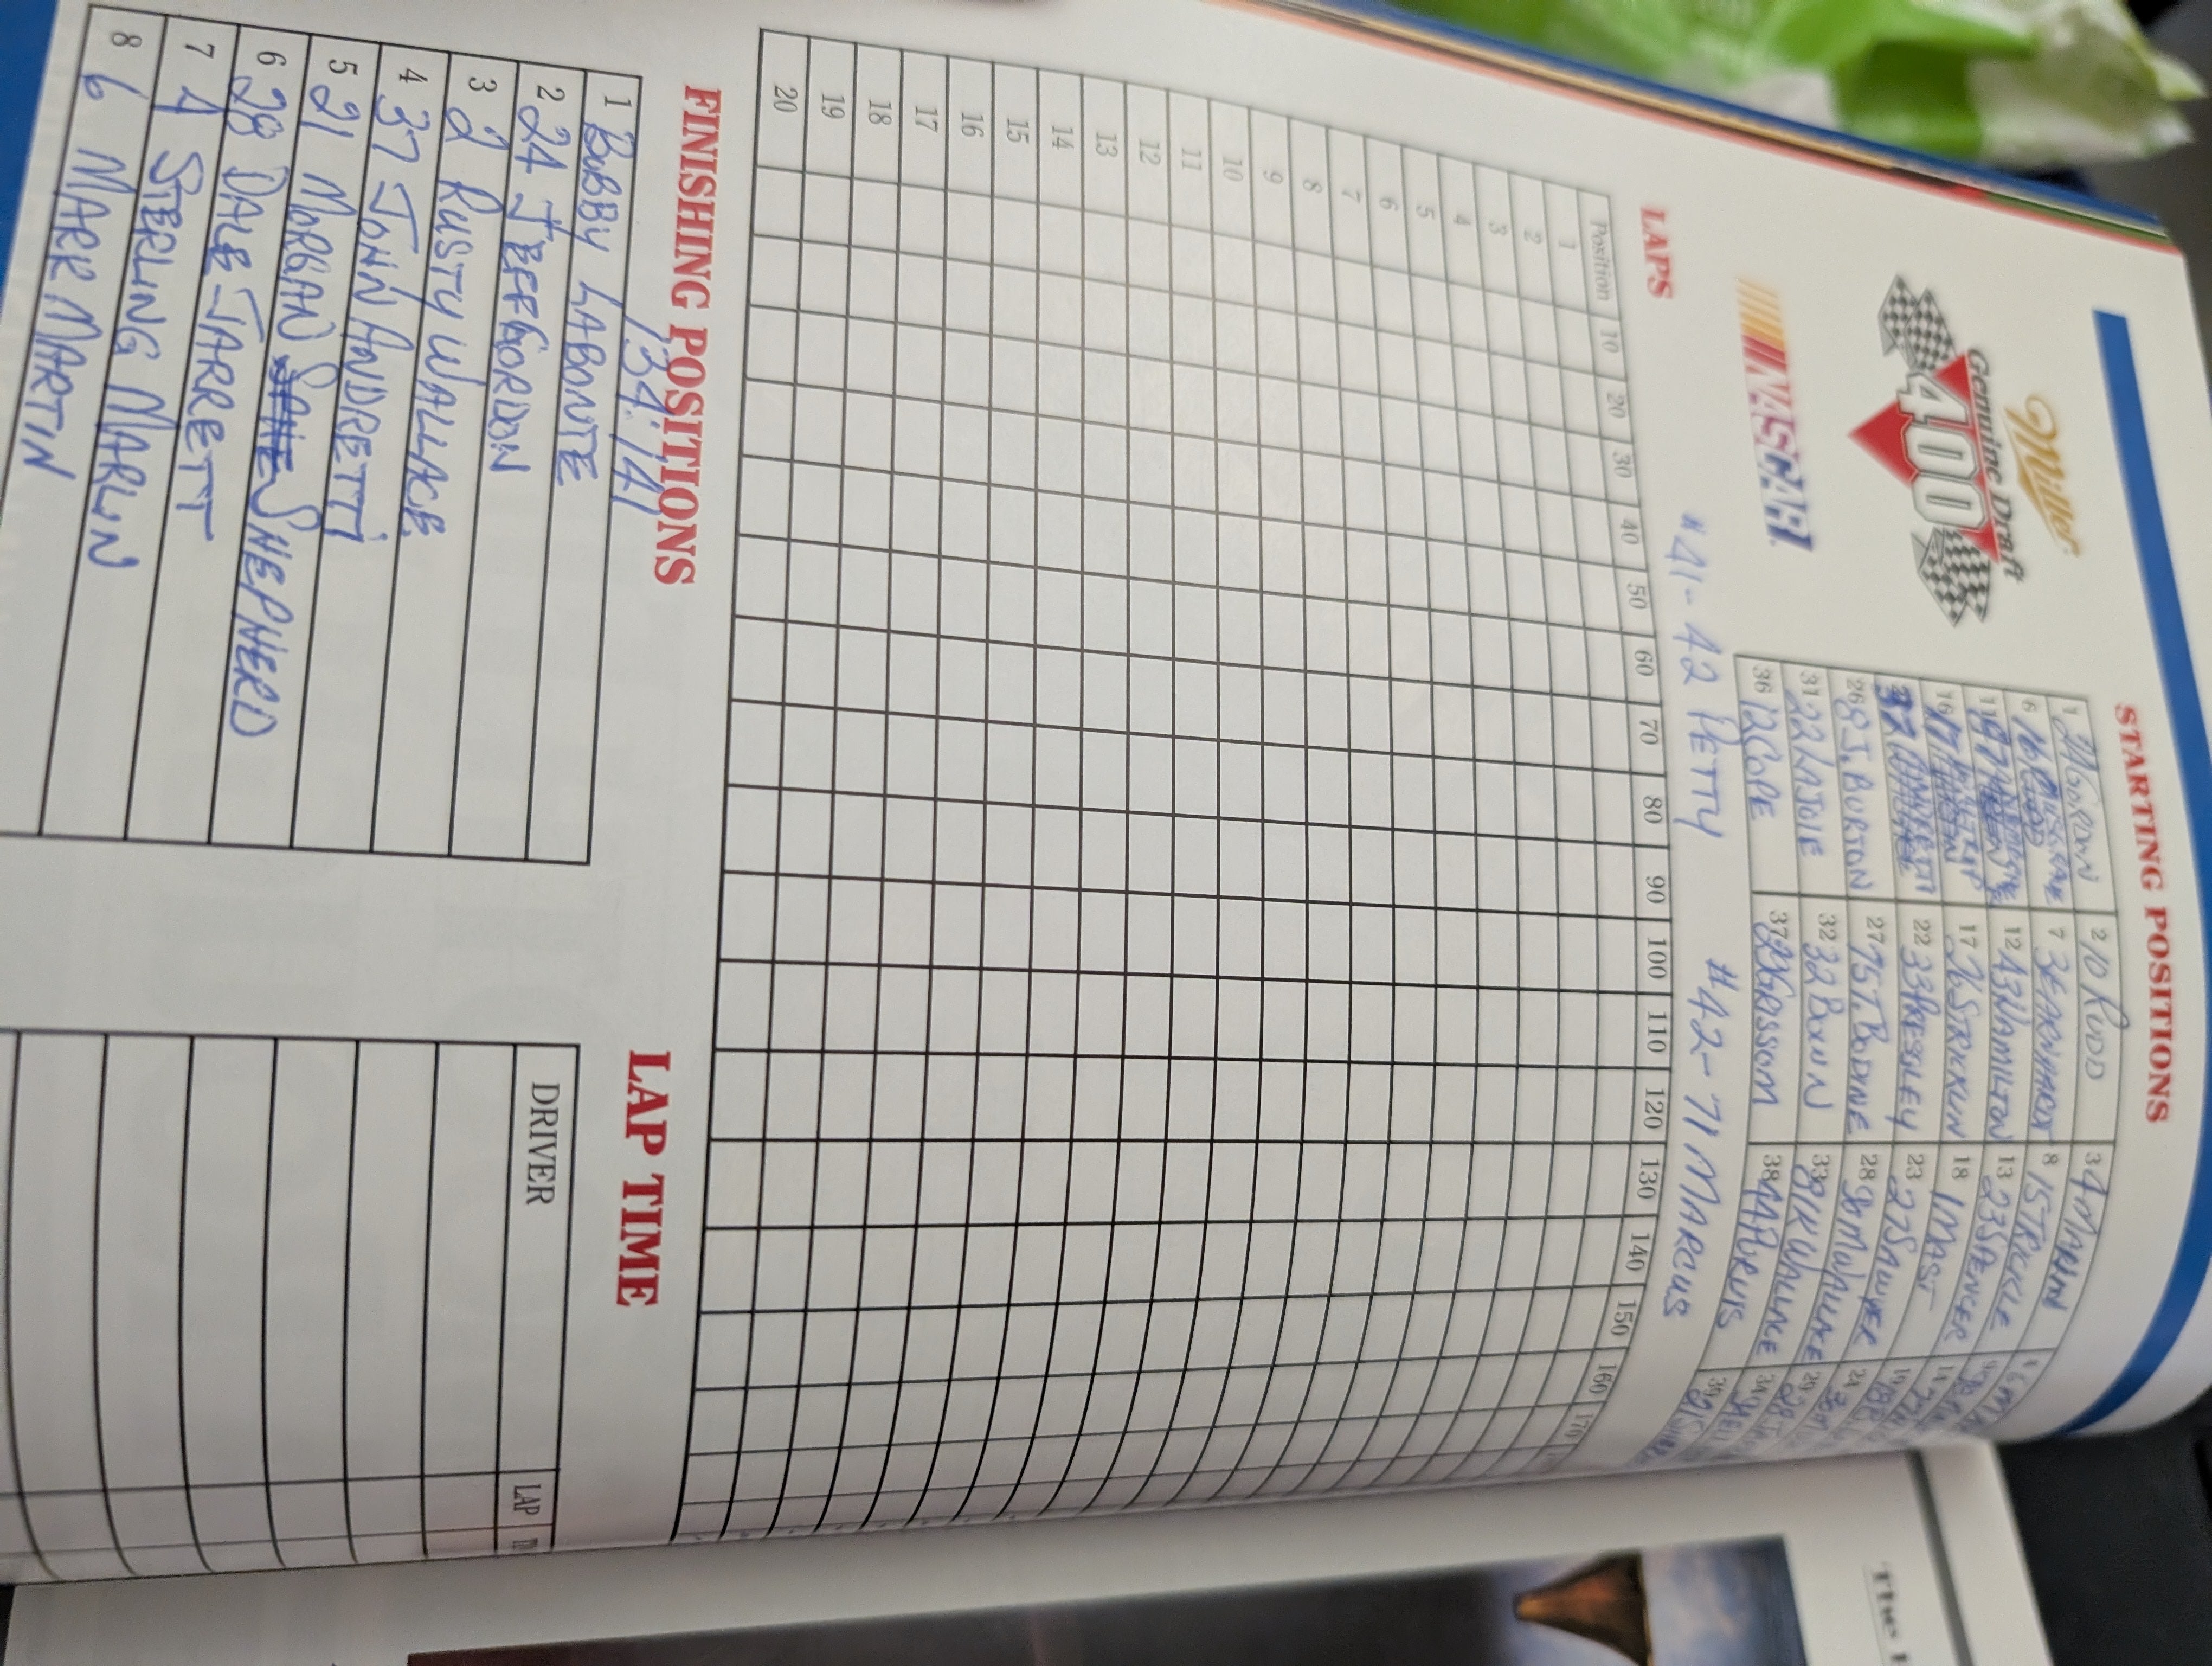 STARTING POSITIONS
Miller
Genuine Draft
400
NASCAR
1 24 GORDON 2 10 RUDD 3 4 MARLIN 4 6
6 16 7 3 EARNHARDT 8 15 TRICKLE 9 30
11 12 43 HAMILTON 13 23 SPENCER 14
16 17 17 26 STRICKLIN 18 1 MAST 19
22 33 PRESSLEY 23 27 SAWYER 24
26 8 J. BURTON 27 75 T. BODINE 28 98 M WALLACE 29
31 22 LAJOIE 32 32 BOWN 33 81 K WALLACE 34
36 12 COPE 37 29 GRISSOM 38 44 PURVIS 39
#41 - 42 PETTY #42 - 71 MARCUS
LAPS
Position 10 20 30 40 50 60 70 80 90 100 110 120 130 140 150 160 170
1
2
3
4
5
6
7
8
9
10
11
12
13
14
15
16
17
18
19
20
FINISHING POSITIONS
134.141
1 BOBBY LABONTE
2 24 JEFF GORDON
3 2 RUSTY WALLACE
4 37 JOHN ANDRETTI
5 21 MORGAN SHEPHERD
6 28 DALE JARRETT
7 4 STERLING MARLIN
8 6 MARK MARTIN
LAP TIME
DRIVER LAP